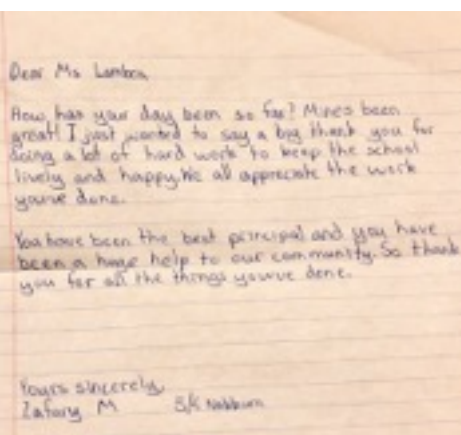 Dear Ms
How has your day been so far? Mines been
great! I just wanted to say a big thank you for
doing a lot of hard work to keep the school
lively and happy. We all appreciate the work
youve done.
You have been the best principal and you have
been a huge help to our community. So thank
you for all the things youve done.
Yours sincerely,
M